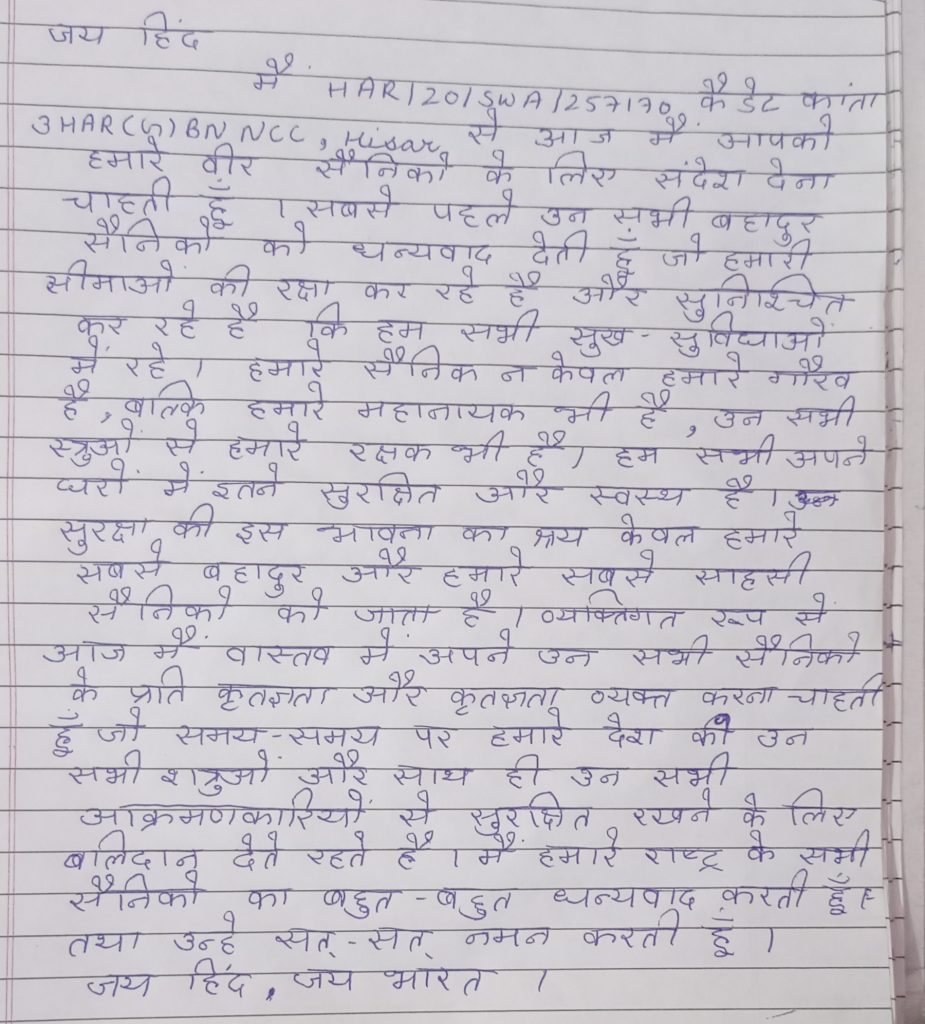 जय हिंद
मैं HAR/20/SWA/257170, कैडेट कांता
3HAR(G)BN NCC, Hisar से आज मैं आपको
हमारे वीर सैनिको के लिए संदेश देना
चाहती हूँ । सबसे पहले उन सभी बहादुर
सैनिको को धन्यवाद देती हूँ जो हमारी
सीमाओं की रक्षा कर रहे है और सुनिश्चित
कर रहे है कि हम सभी सुख-सुविधाओं
में रहे । हमारे सैनिक न केवल हमारे गौरव
है, बल्कि हमारे महानायक भी है, उन सभी
स्त्रुओं से हमारे रक्षक भी है। हम सभी अपने
घरों में इतने सुरक्षित और स्वस्थ है ।
सुरक्षा की इस भावना का श्रय केवल हमारे
सबसे बहादुर और हमारे सबसे साहसी
सैनिको को जाता है । व्यक्तिगत रूप से
आज मैं वास्तव में अपने उन सभी सैनिको
के प्रति कृतज्ञता और कृतज्ञता व्यक्त करना चाहती
हूँ जो समय-समय पर हमारे देश की उन
सभी शत्रुओं और साथ ही उन सभी
आक्रमणकारियों से सुरक्षित रखने के लिए
बलिदान देते रहते है । मैं हमारे राष्ट्र के सभी
सैनिको का बहुत-बहुत धन्यवाद करती हूँ।
तथा उन्हे सत्-सत् नमन करती हूँ ।
जय हिंद, जय भारत ।